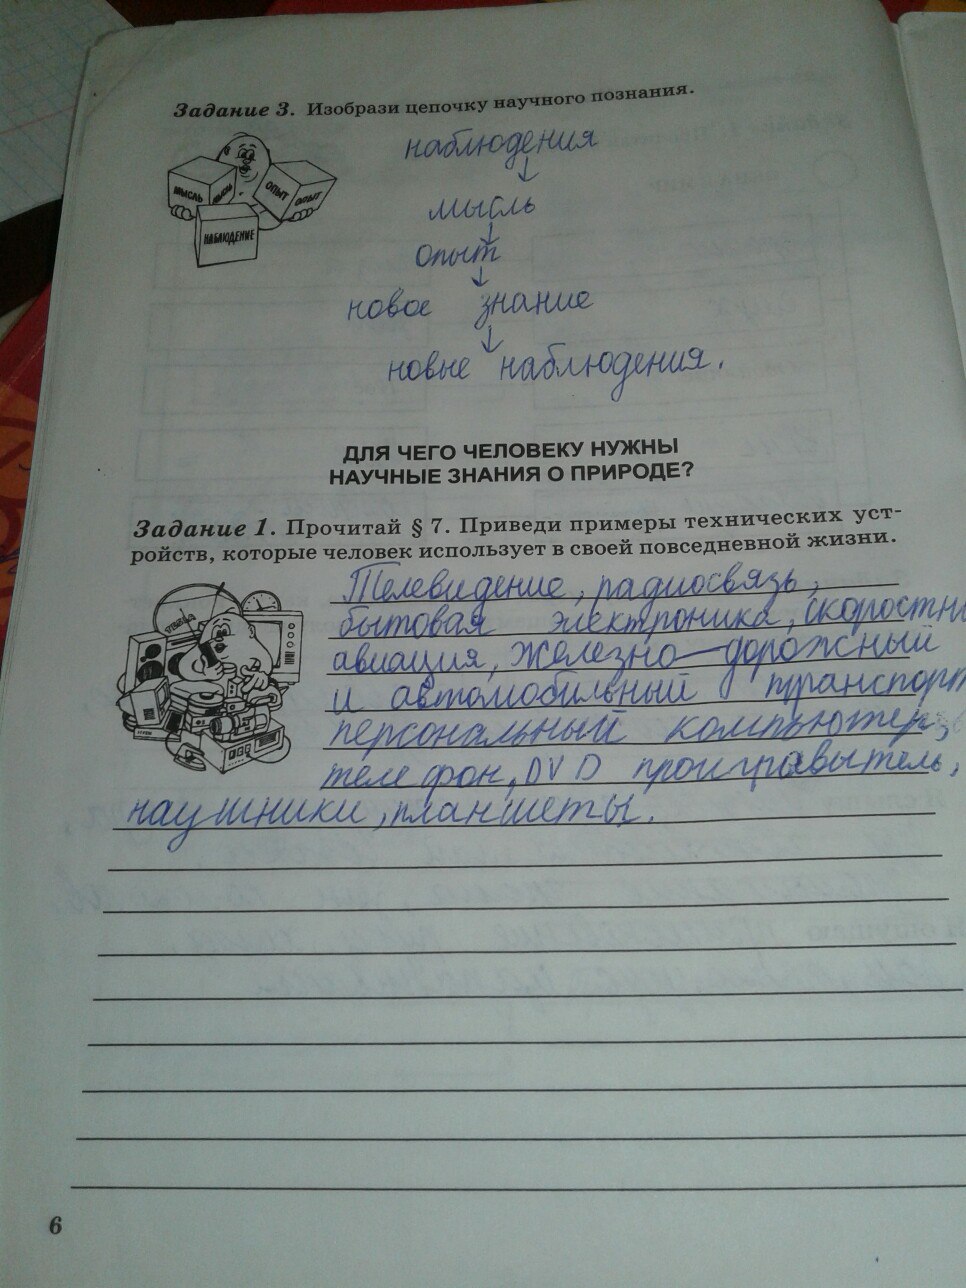 Задание 3. Изобрази цепочку научного познания.
наблюдения
↓
мысль
↓
опыт
↓
новое знание
↓
новые наблюдения.
МЫСЛЬ
МЫСЛЬ
ОПЫТ
ОПЫТ
НАБЛЮДЕНИЕ
ДЛЯ ЧЕГО ЧЕЛОВЕКУ НУЖНЫ
НАУЧНЫЕ ЗНАНИЯ О ПРИРОДЕ?
Задание 1. Прочитай § 7. Приведи примеры технических уст-
ройств, которые человек использует в своей повседневной жизни.
Телевидение, радиосвязь,
бытовая электроника, скоростн
авиация, железно-дорожный
и автомобильный транспорт
персональный компьютер,
телефон, DVD проигравытель,
наушники, планшеты.
6